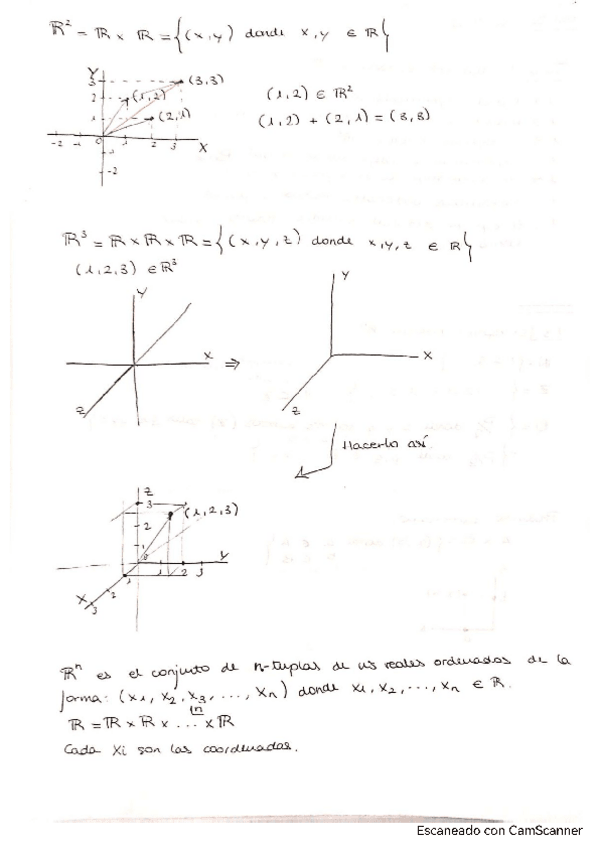 ℝ² = ℝ × ℝ = {(x,y) donde x,y ∈ ℝ}
Y
3
(3,3)
2
(1,2)
1
(2,1)
-2 -1 0 1 2 3 X
-1
-2
(1,2) ∈ ℝ²
(1,2) + (2,1) = (3,3)
ℝ³ = ℝ × ℝ × ℝ = {(x,y,z) donde x,y,z ∈ ℝ}
(1,2,3) ∈ ℝ³
Y
X
Z
⇒
Y
X
Z
Hacerlo así.
Z
3
(1,2,3)
2
1
0
Y
1 2 3
1
2
3
X
ℝⁿ es el conjunto de n-tuplas de nºs reales ordenados de la
forma: (x₁, x₂, x₃, ..., xₙ) donde x₁, x₂, ..., xₙ ∈ ℝ.
ℝ = ℝ × ℝ × ... × ℝ
(n
Cada Xi son las coordenadas.
Escaneado con CamScanner